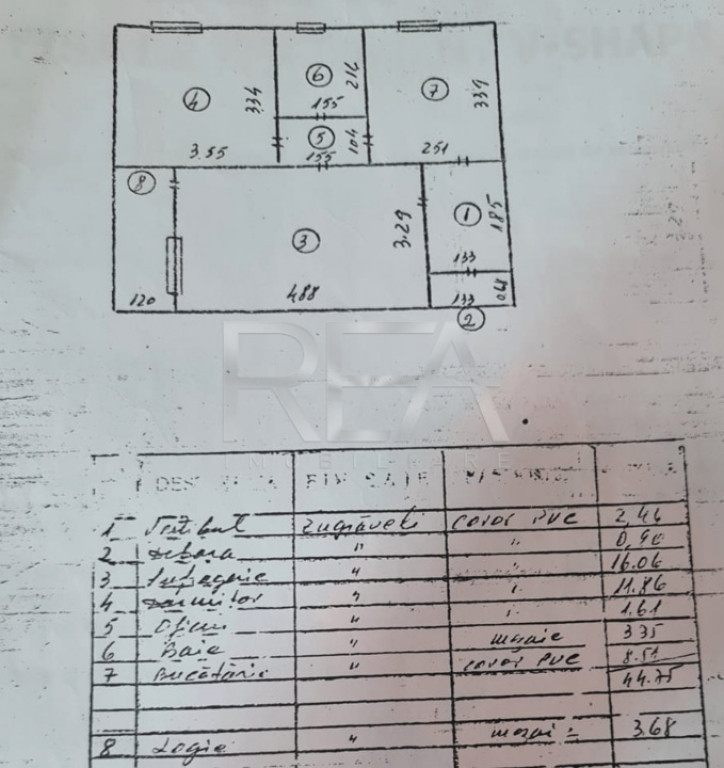 6
216
4
334
155
7
339
5
104
3.55
155
251
8
1
185
3
3.29
133
120
488
133
068
2
REA
IMOBILIARE
1 Vestibul zugrăveli covor PVC 2,46
2 debara " " 0,90
3 Sufragerie " " 16.06
4 dormitor " " 11.86
5 Oficiu " " 1.61
6 Baie " mozaic 3.35
7 Bucătărie " covor PVC 8.51
44.75
8 Logie " 3.68
V-SHAP